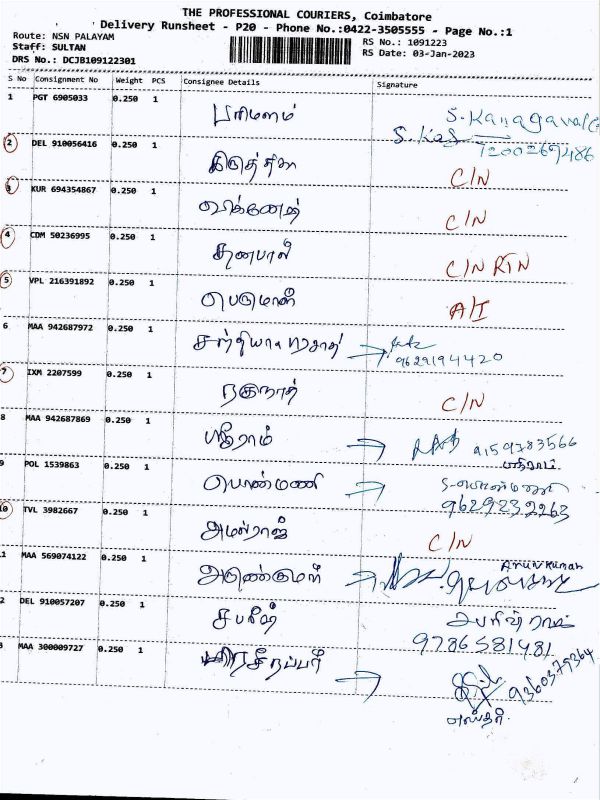 THE PROFESSIONAL COURIERS, Coimbatore
Delivery Runsheet - P20 - Phone No.:0422-3505555 - Page No.:1
Route: NSN PALAYAM
RS No.: 1091223
Staff: SULTAN
RS Date: 03-Jan-2023
DRS No.: DCJB109122301
S No Consignment No Weight PCS Consignee Details Signature
1 PGT 6905033 0.250 1
பரிமளம் S. Kanagavalli
7200269486
2 DEL 910056416 0.250 1
C/N
3 KUR 694354867 0.250 1
விக்னேஷ் C/N
4 CDM 50236995 0.250 1
தனபால் C/N RTN
5 VPL 216391892 0.250 1
பெருமாள் A/I
6 MAA 942687972 0.250 1
9629194420
7 IXM 2207599 0.250 1
ரகுநாத் C/N
8 MAA 942687869 0.250 1
ஸ்ரீராம் 9159783566
ஸ்ரீராம்
9 POL 1539863 0.250 1
பொன்மணி S. பொன்மணி
9629232263
10 TVL 3982667 0.250 1
அமல்ராஜ் C/N
1 MAA 569074122 0.250 1
அருண்குமார் Arunkumar
2 DEL 910057207 0.250 1
சபரீஷ்
9786581481
3 MAA 300009727 0.250 1
9360379364